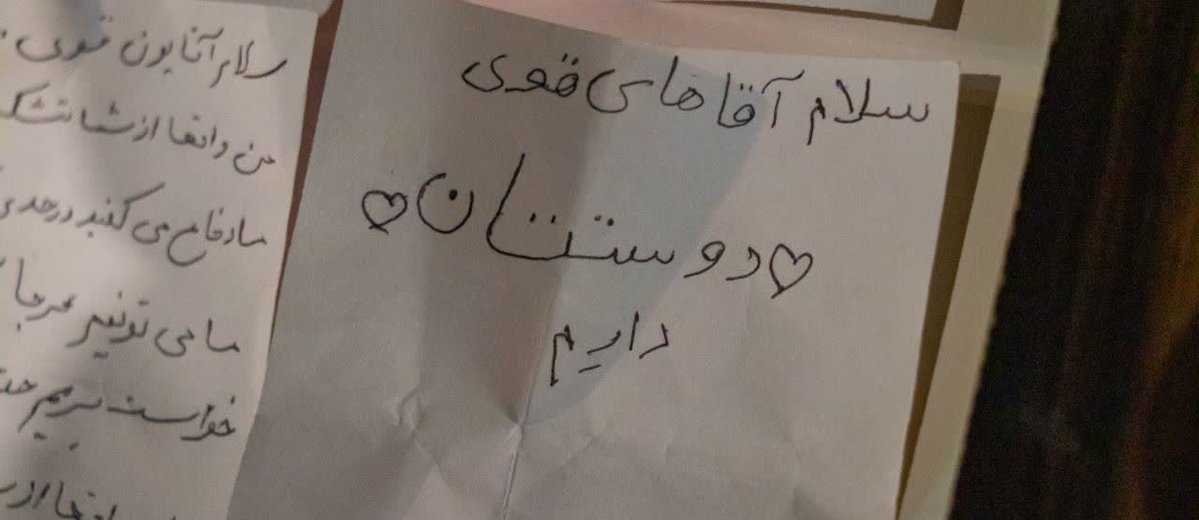 سلام آقا های قوی
♡دوستتان♡
داریم
سلام آقایون قوی
من واقعا از شما تشکر
ما دفاع می کنید در حدی
ما می تونیم هرجا
خواست بریم